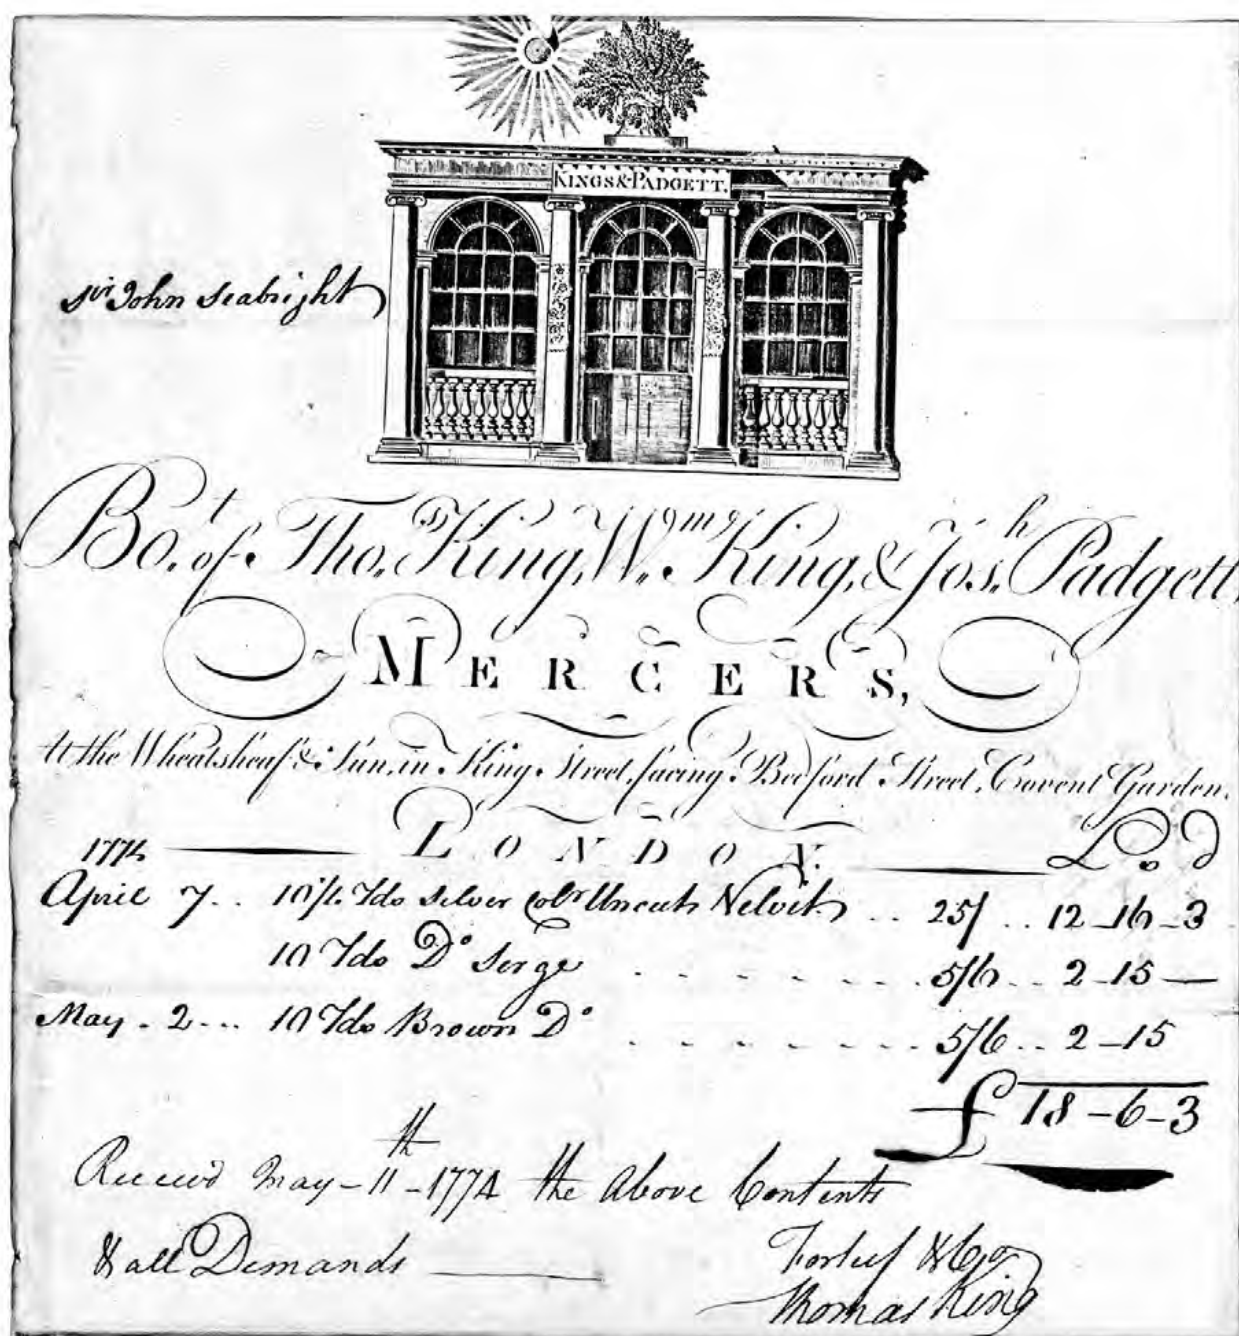 KINGS & PADGETT.
Sir John Seabright
Bo.t of Tho.s King, W.m King, & Jos.h Padgett,
MERCERS,
At the Wheatsheaf & Sun, in King Street, facing Bedford Street, Covent Garden.
LONDON.
1774 £ s d
April 7 .. 10¼ Yds Silver Col.r Uncut Velvit .. 25/ .. 12-16-3
10 Yds D.o Serge 5/6 .. 2-15-
May - 2 ... 10 Yds Brown D.o 5/6 .. 2-15
£ 18-6-3
Received May-11th-1774 the above Contents
& all Demands
For Self & Co
Thomas King